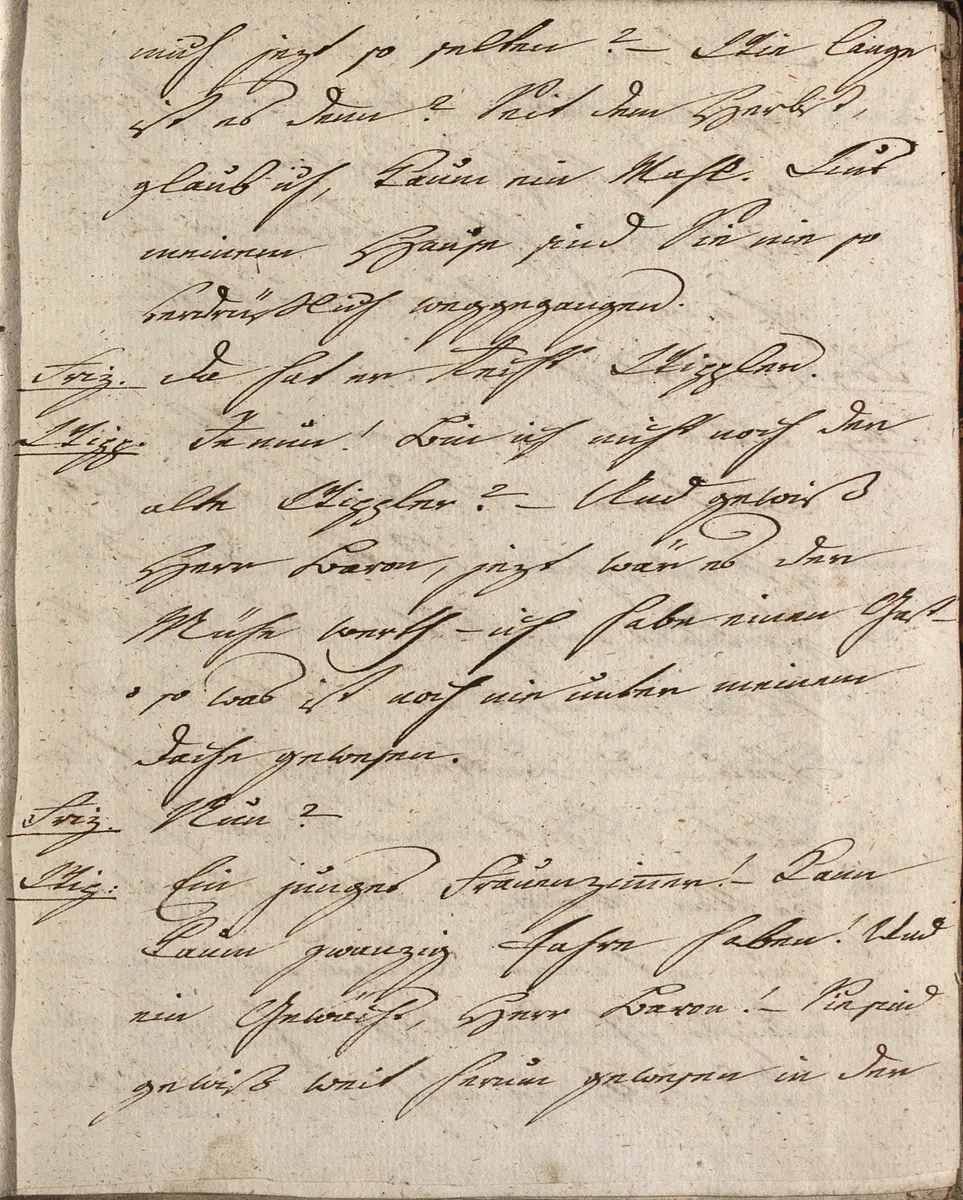 mich jezt so selten? – Wie lange
ist es denn? Seit dem Herbst,
glaub ich, kaum ein Mahl. Aus
meinem Hause sind Sie nie so
verdrüßlich weggegangen.
Friz. Da hat er Recht Wippler.
Wipp. Je nun! Bin ich nicht noch der
alte Wippler? – Und gewiß
Herr Baron, jezt wär es der
Mühe werth – ich habe einen Gast –
so was ist noch nie unter meinem
Dache gewesen.
Friz. Nun?
Wip: Ein junges Frauenzim̅er! – Kann
kaum zwanzig Jahre haben! Und
ein Gewächs, Herr Baron! – Sie sind
gewiß weit herum gewesen in der